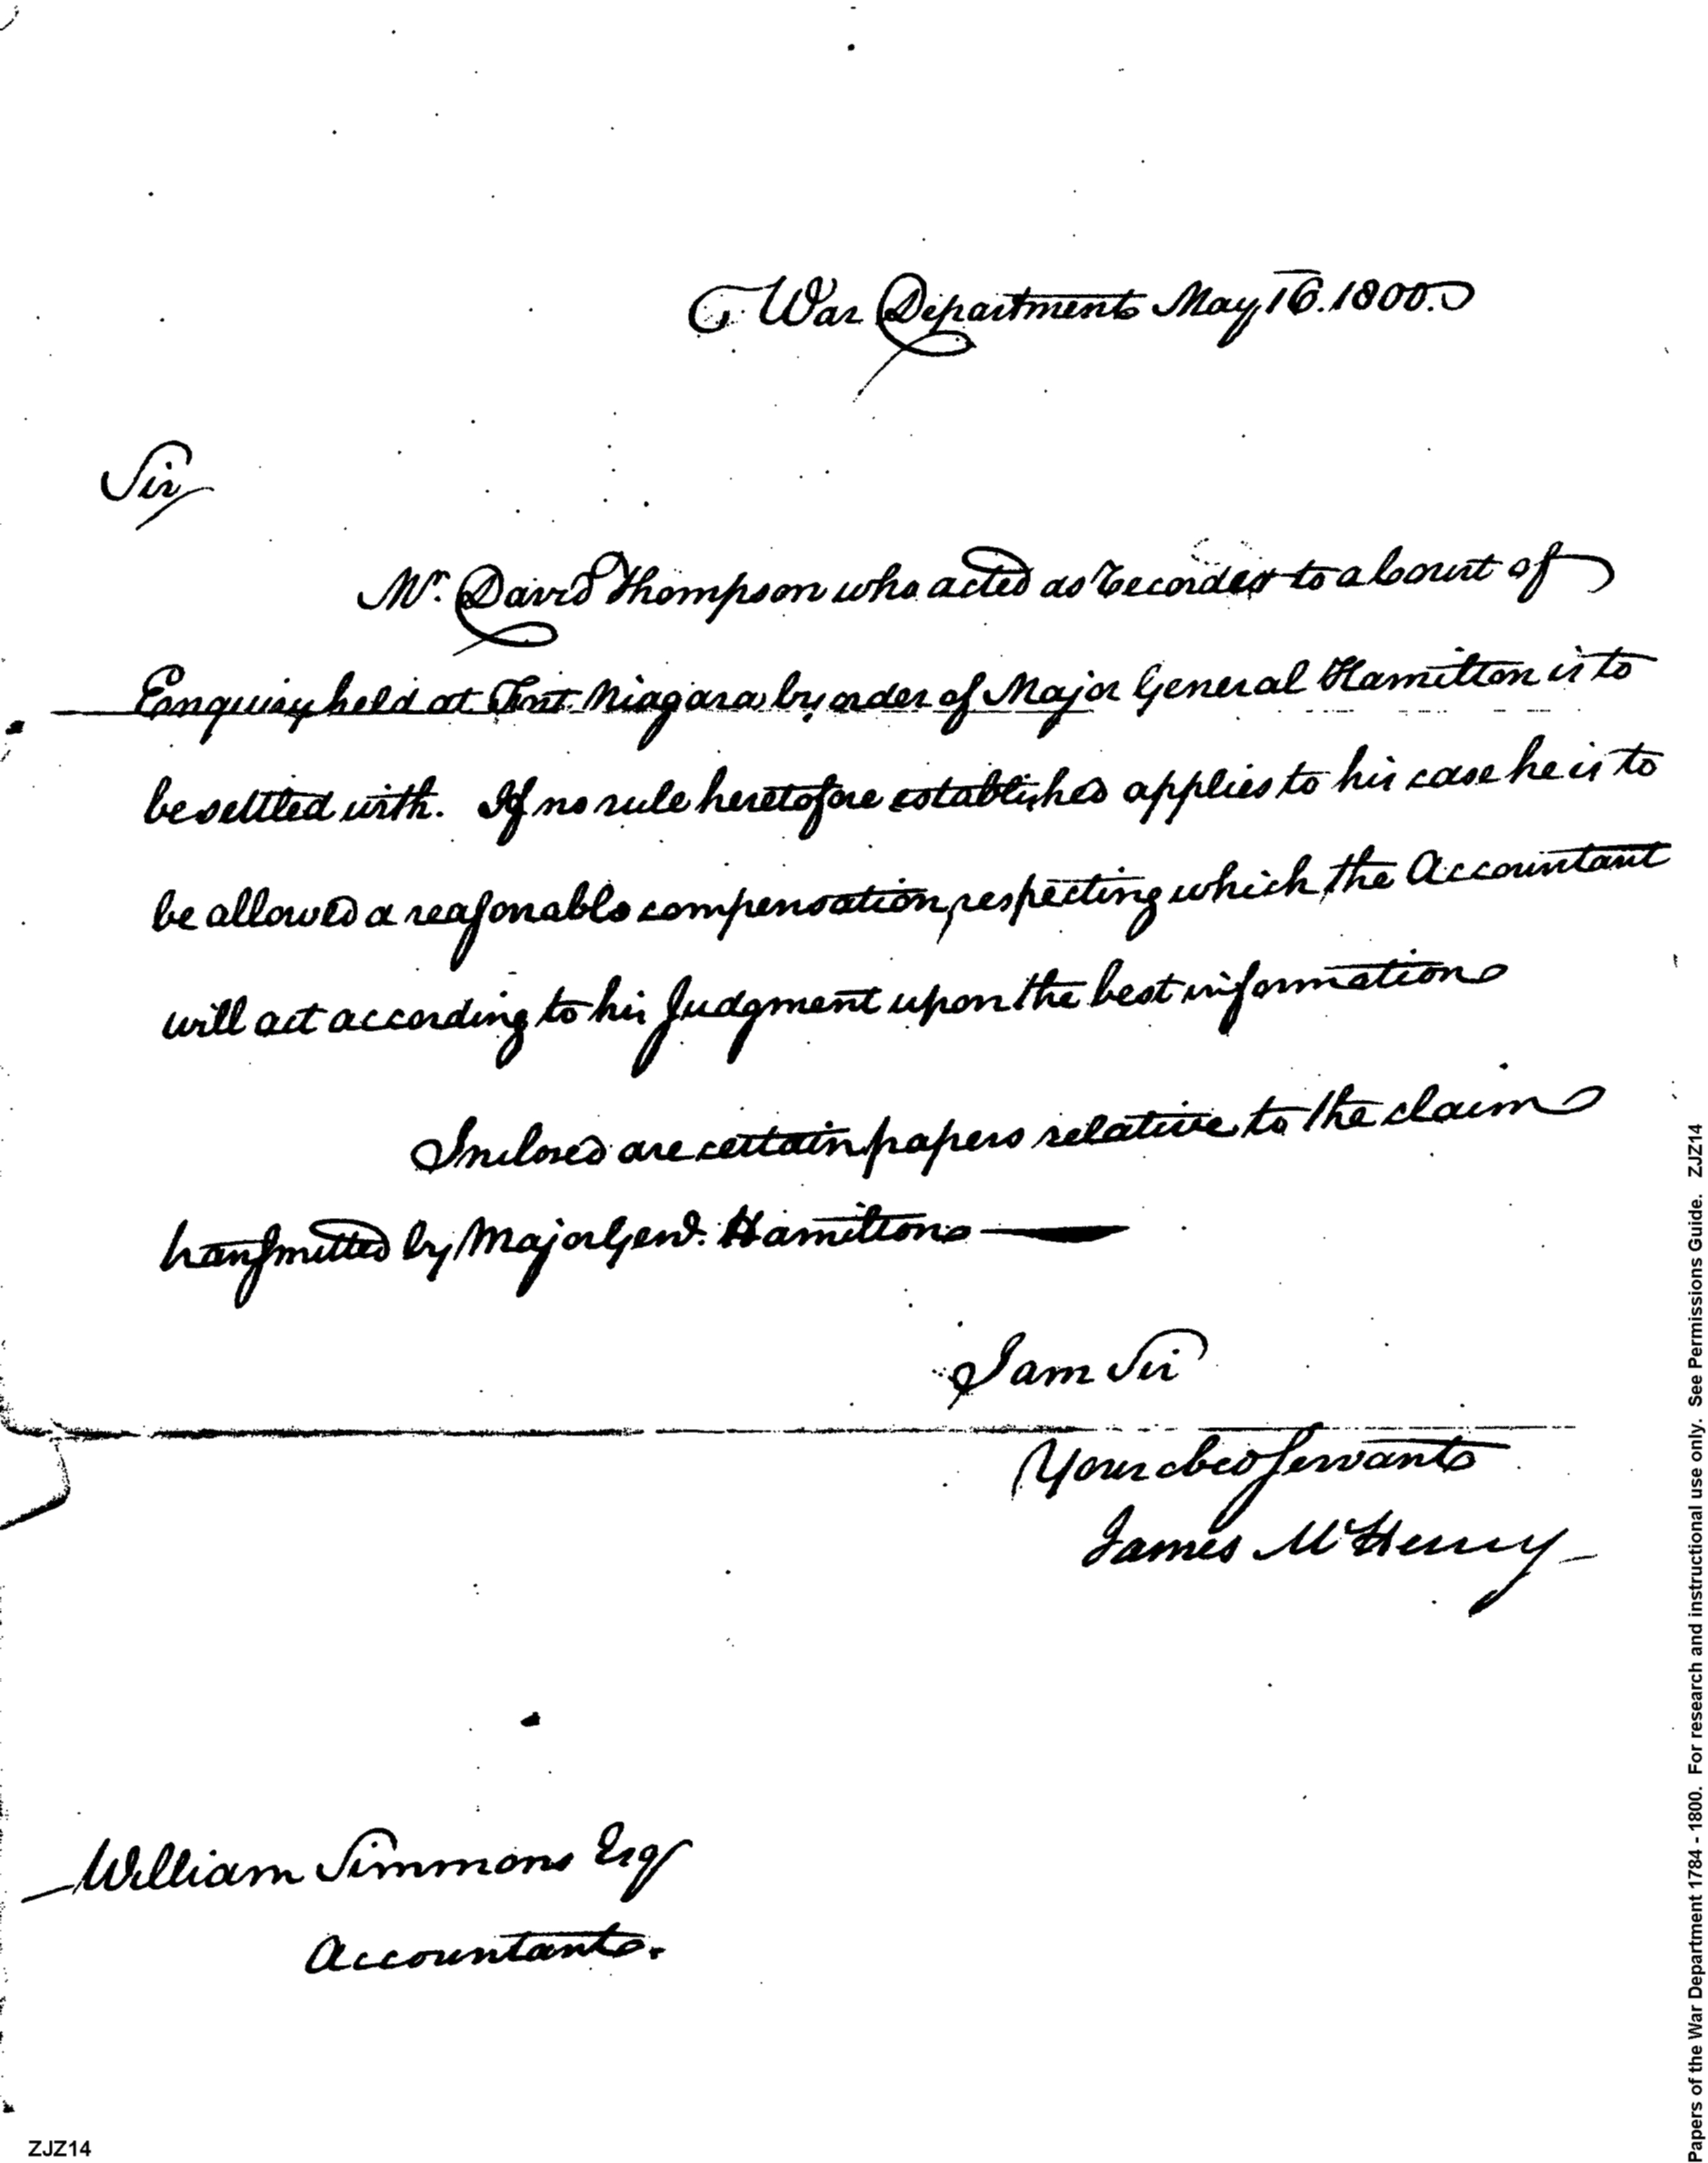 War Department May 16. 1800.
Sir
Mr. David Thompson who acted as Recorder to a Court of
Enquiry held at Fort Niagara by order of Major General Hamilton is to
be settled with. If no rule heretofore established applies to his case he is to
be allowed a reasonable compensation, respecting which the Accountant
will act according to his Judgment upon the best information
Inclosed are certain papers relative to the claim
transmitted by Major Genl. Hamilton
I am Sir
Your obed Servant
James McHenry
William Simmons Esqr
Accountant.
ZJZ14
Papers of the War Department 1784 - 1800. For research and instructional use only. See Permissions Guide. ZJZ14